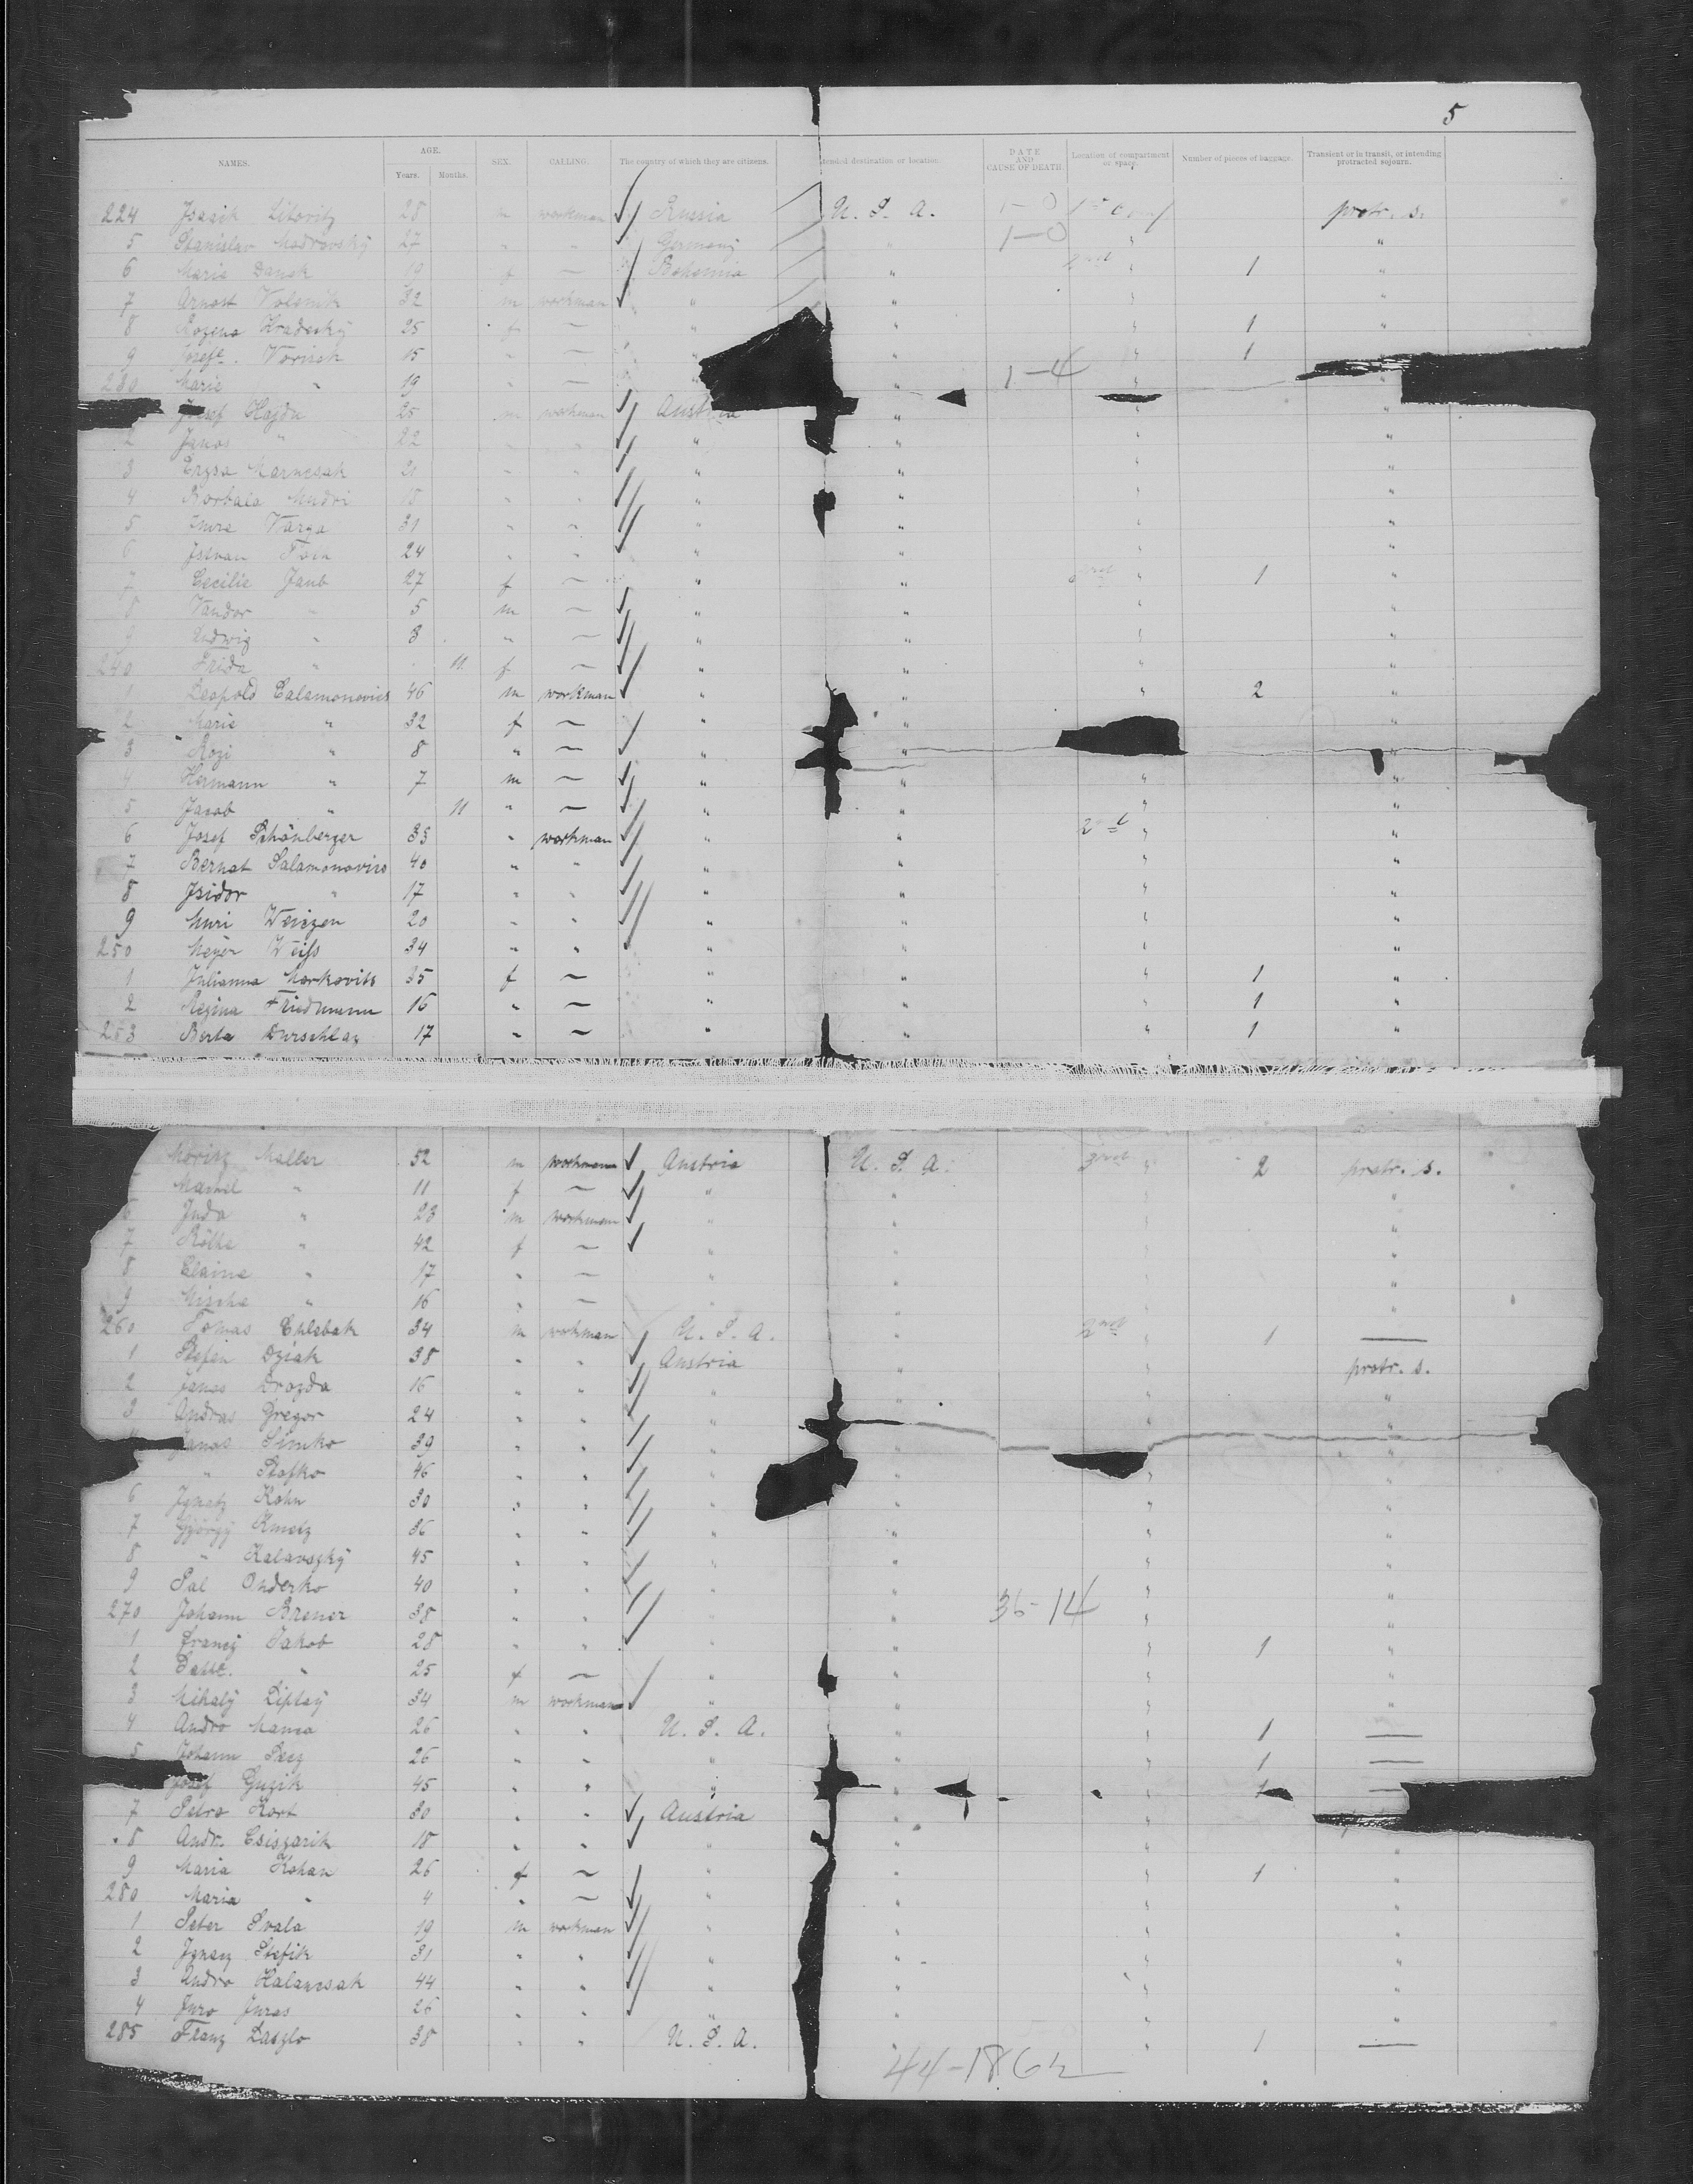 5
NAMES. AGE. SEX. CALLING. The country of which they are citizens. tended destination or location. DATE AND CAUSE OF DEATH. Location of compartment or space. Number of pieces of baggage. Transient or in transit, or intending protracted sojourn.
Years. Months.
224 Isaaik Litovitz 28 m workman Russia U. S. A. 1-0 protr. s.
5 Stanislav 27 " " Germany " 1-0 " "
6 Marie Danek 19 f — Bohemia " 2nd " 1 "
7 Arnost 32 m workman " " " "
8 Rozena Hradecky 25 f — " " " 1 "
9 Josefe. Vorisek 15 " — " " " 1
230 Marie " 19 " — " " 1-4 " "
Josef Hajdu 25 m workman Austria " "
2 Janos " 22 " " " " "
3 21 " " " " " "
4 Borbala Mudri 18 " " " " " "
5 Imre Varga 31 " " " " " "
6 Istvan 24 " " " " " "
7 Cecilie Jaub 27 f — " " " 1 "
8 Vandor " 5 m — " " " "
9 Ludwig " 8 " — " " " "
240 Frida " 11 f — " " " "
1 Leopold Salamonovics 46 m workman " " " 2 "
2 Marie " 32 f — " " "
3 Rozi " 8 " — " " "
4 Hermann " 7 m — " " " "
5 Jacob " 11 " — " " " "
6 Josef Schönberger 33 " workman " " 2nd " "
7 Bernat Salamonovics 40 " " " " " "
8 Isidor " 17 " " " " " "
9 20 " " " " " "
250 Meyer Weiss 34 " " " " " "
1 Julianna Markovits 35 f — " " " 1 "
2 Regina Friedmann 16 " — " " " 1 "
253 Berta Durschlag 17 " — " " " 1 "
Moritz Maller 52 m workman Austria U. S. A. 3rd " 2 protr. s.
" 11 f — " " " "
6 Juda " 23 m workman " " " "
7 " 42 f — " " " "
8 " 17 " — " " " "
9 " 16 " — " " " "
260 Tomas Chlebak 34 m workman U. S. A. " 2nd " 1 —
1 Stefan Dziak 38 " " Austria " " protr. s.
2 Janos Drozda 16 " " " " " "
3 Andras Gregor 24 " " " " " "
Janos Simko 39 " " " " "
" Stefko 46 " " " " " "
6 Ignatz Kohn 30 " " " " " "
7 György Kmetz 36 " " " " " "
8 " Kalavszky 45 " " " " " "
9 Pal Onderko 40 " " " " " "
270 Johann Brener 38 " " " " 36-14 " "
1 Jakob 28 " " " " " 1 "
2 " 25 f — " " " "
3 Mihaly Liptay 34 m workman " " " "
4 Andro 26 " " U. S. A. " " 1 —
5 Johann 26 " " " " " 1 —
Josef Guzik 45 " " " " 1 —
7 Petro Kort 30 " " Austria " "
8 Andr. Csiszarik 18 " " " " " "
9 Maria Kohan 26 f — " " " 1 "
280 Maria " 4 " — " " " "
1 Peter Svala 19 m workman " " " "
2 Ignacz Stefik 31 " " " " " "
3 Andro Halancsak 44 " " " " " "
4 Juro Juras 26 " " " " " "
285 Franz Laszlo 38 " " U. S. A. " " 1 —
44-18